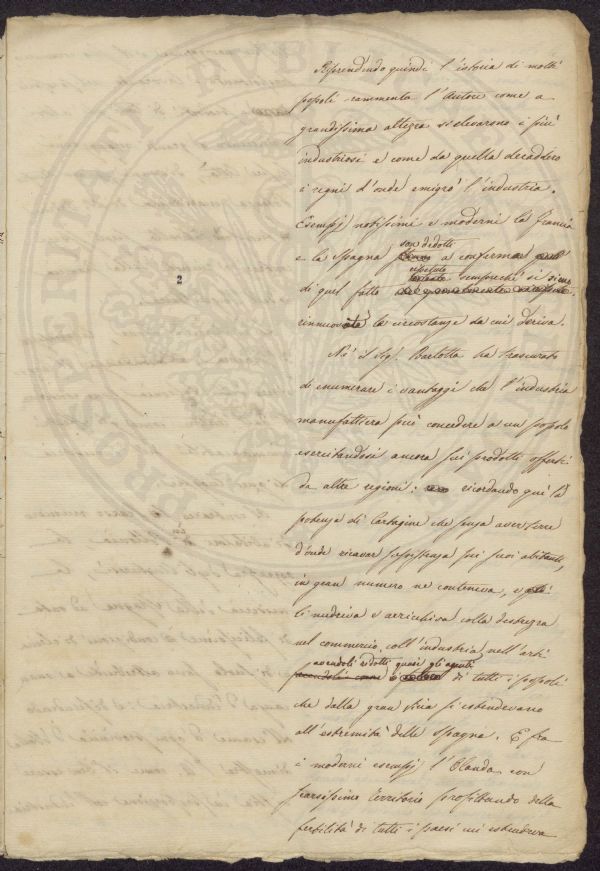 Riprendendo quindi l'istoria di molti
popoli rammenta l'Autore come a
grandissima altezza si elevarono i più
industriosi e come da quella decaddero
i regni d'onde emigrò l'industria.
Esempj notissimi e moderni la Francia
e la Spagna son dedotti a conferma
di quel fatto ripetuto semprechè si sieno
rinnovate le circostanze da cui deriva.
Nè il Sig. Barlotta ha trascurato
di enumerare i vantaggi che l'industria
manufattiera può concedere a un popolo
esercitandosi ancora sui prodotti offerti
da altre regioni: ricordando qui la
potenza di Cartagine che senza aver terre
d'onde ricavar sussistenza pei suoi abitanti,
in gran numero ne conteneva, e
li nudriva e arricchiva colla destrezza
nel commercio, coll'industria nell'arti
avendoli ridotti quasi gli agenti di tutti i popoli
che dalla gran Siria si estendevano
all'estremità della Spagna. E fra
i moderni esempj l'Olanda con
scarsissimo territorio profittando della
fertilità di tutti i paesi cui estendeva
2